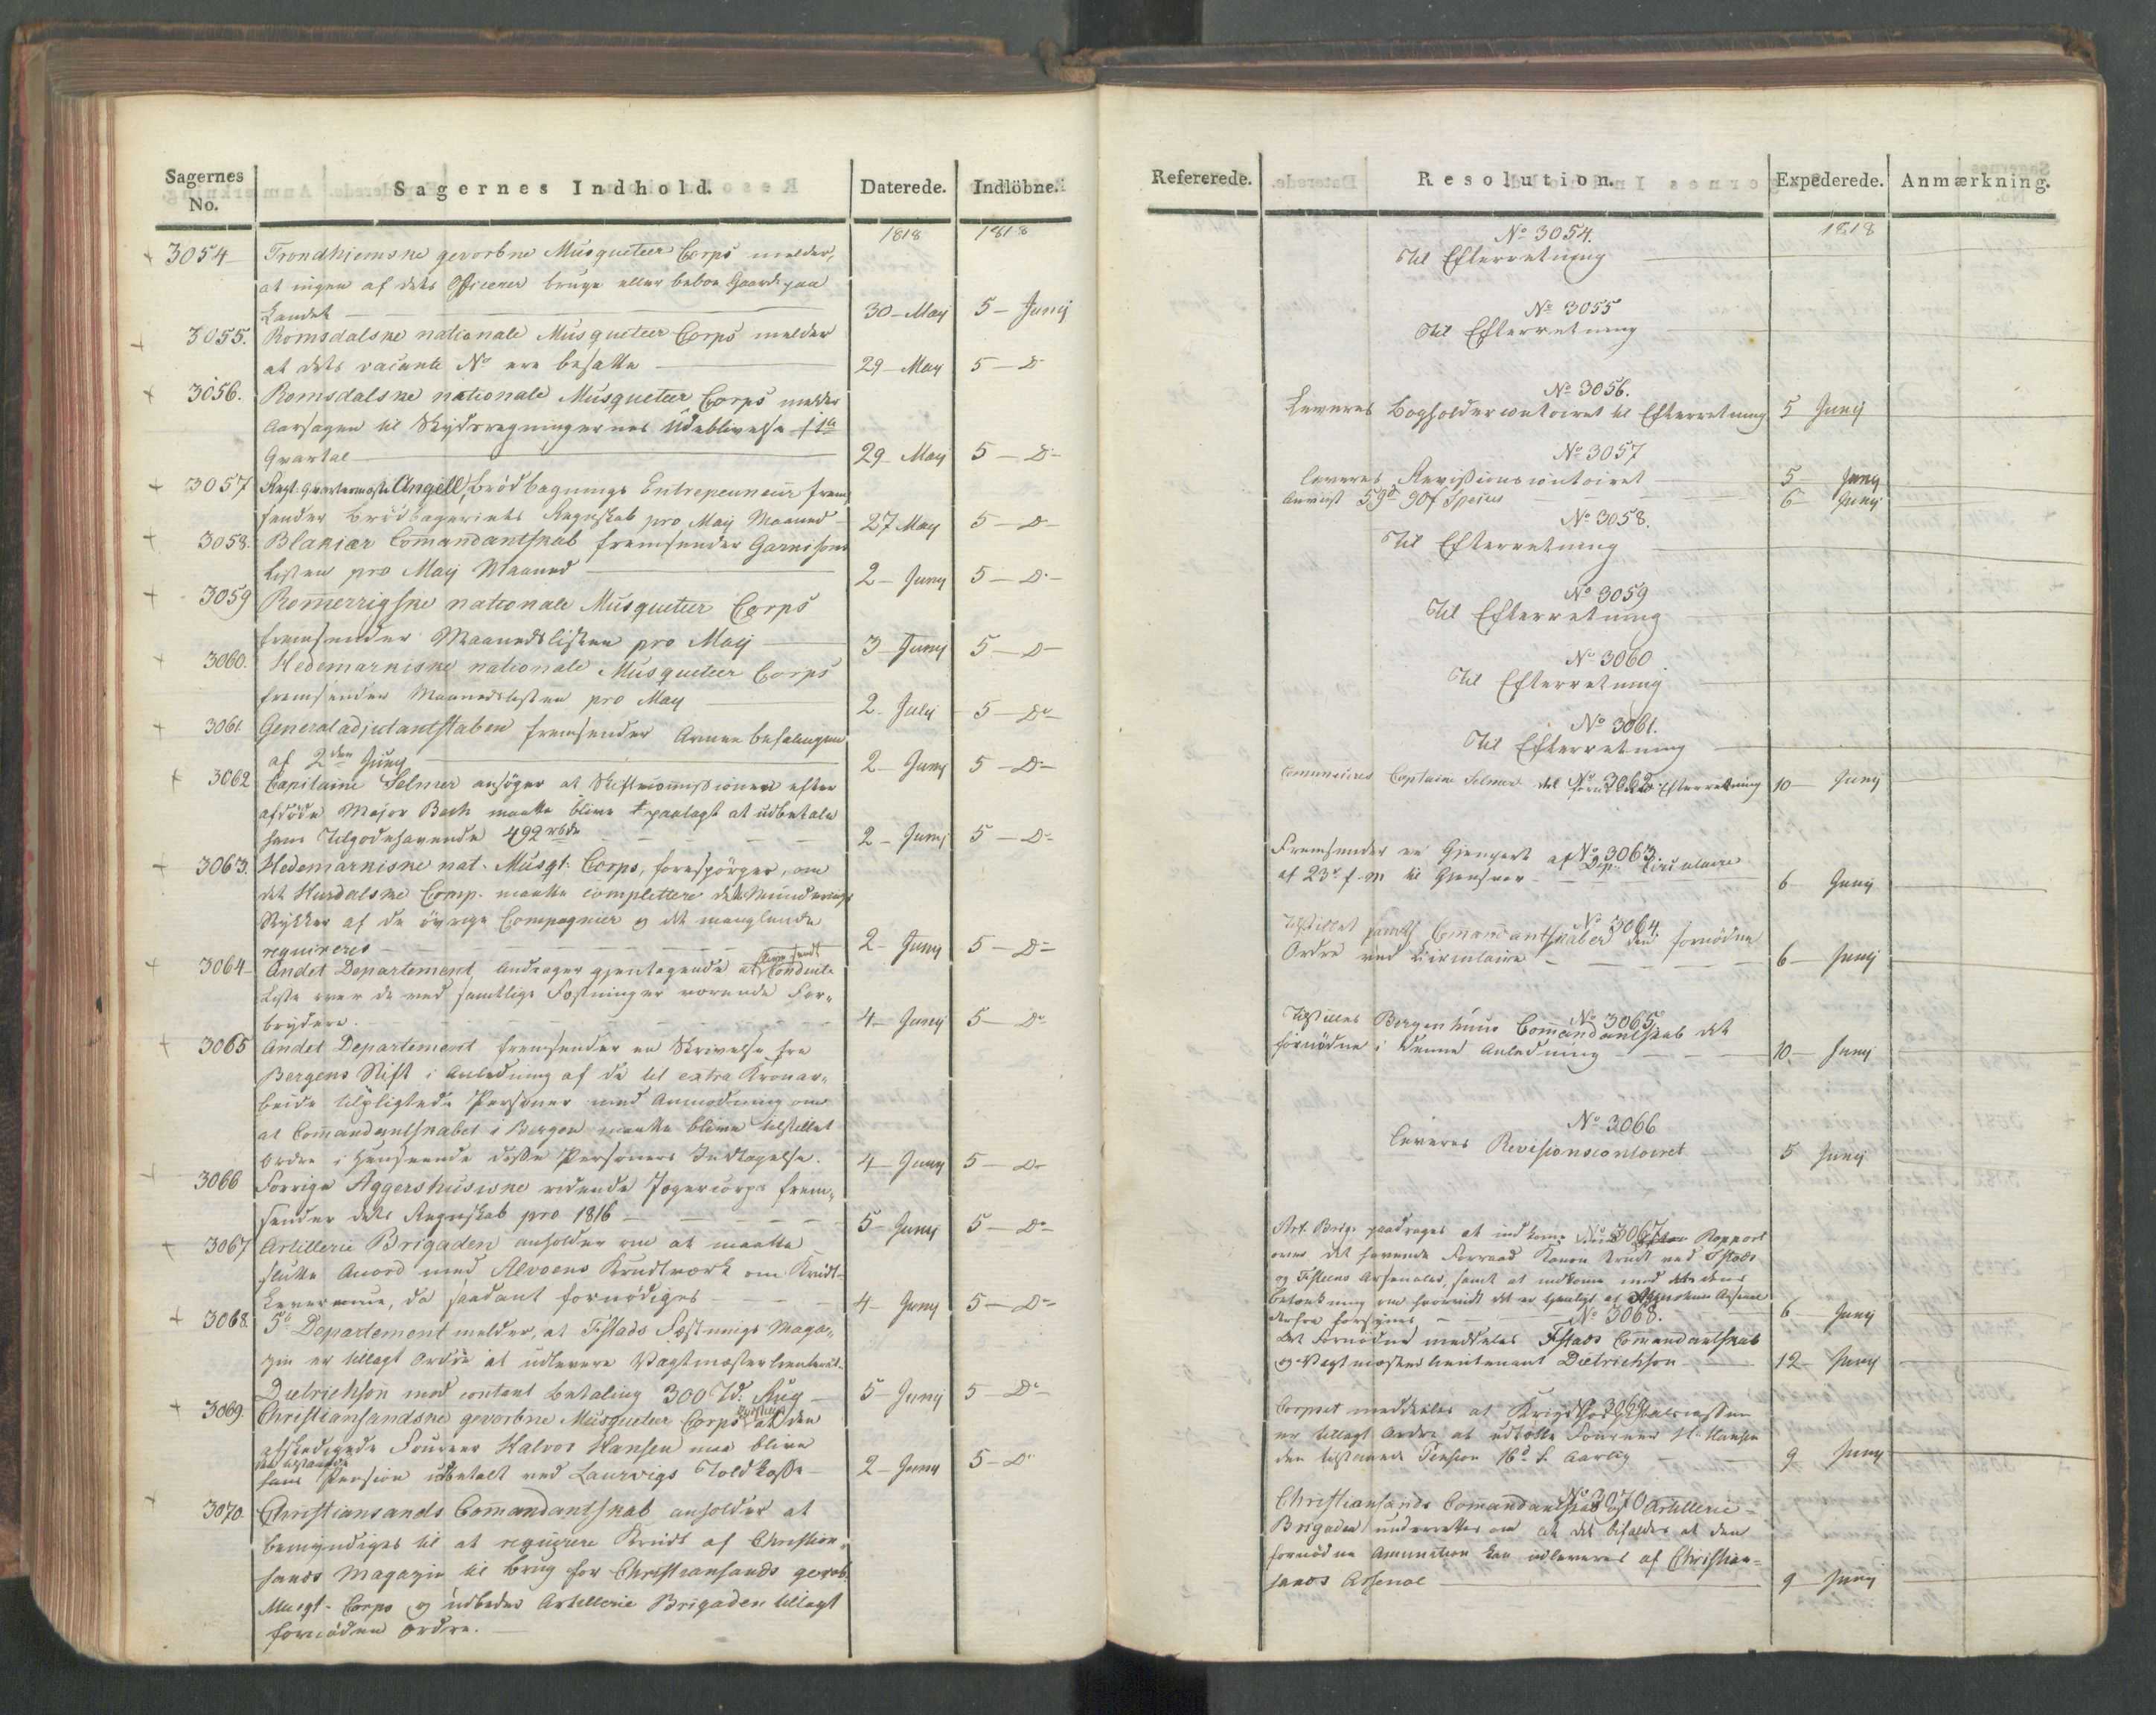 Sagernes No.
Sagernes Indhold.
Daterede.
Indlöbne.
1818
1818
3054 Trondhiemske gevorbne Musqueteer Corps melder,
at ingen af dets Officerer bruge eller beboe Gaarde paa
Landet 30 - Maij 5 - Junij
3055. Romsdalske nationale Musqueteer Corps melder
at dets vacante No ere besatte 29 - Maij 5 - Do
3056. Romsdalske nationale Musqueteer Corps melder
Aarsagen til Skydsregningernes Udeblivelse f 1ste
Qvartal 29 Maij 5 - Do
3057 Regt: Qvarteermester Angell, Brödbagnings Entrepenneur frem
sender Brödbageriets Regnskab pro Maij Maaned 27 Maij 5 - Do
3058. Blakiær Commandantskab fremsender Garnisons
Listen pro Maij Maaned 2 - Junij 5 - Do
3059 Romerrigske nationale Musqueteer Corps
fremsender Maanedslisten pro Maij 3 - Junij 5 - Do
3060. Hedemarkiske nationale Musqueteer Corps
fremsender Maanedslisten pro Maij 2 - Julij 5 - Do
3061. Generaladjutantstaben fremsender Armee befalingen
af 2den Junij 2 - Junij 5 - Do
3062 Capitaine Selmer ansöger at Skiftecommissionen efter
afdöde Major Bech maatte blive paalagt at udbetale
hans Tilgodehavende 492 rbdr 2 - Junij 5 - Do
3063. Hedemarkiske nat. Musqt. Corps, forespörger, om
det Hurdalske Comp. maatte complettere dets Munderings
Stykker af de övrige Compagnier og det manglende
requireres 2 - Junij 5 - Do
3064 Andet Departement Andrager gjentagende at Conduite
Liste over de ved samtlige Fæstninger værende For-
brydere. 4 - Junij 5 - Do
3065 Andet Departement fremsender en Skrivelse fra
Bergens Stift i Anledning af de til extra Kronar-
beide tilpligtede Personer med Anmodning om
at Commandantskabet i Bergen maatte blive tilstillet
Ordre i Henseende disse Personers Indtagelse. 4 - Junij 5 - Do
3066 Forrige Aggershusiske ridende Jægercorps frem-
sender dets Regnskab pro 1816 5 - Junij 5 - Do
3067 Artillerie Brigaden anholder om at maatte
slutte Accord med Alvoens Krudtværk om Krudt-
Leverance, da saadant fornödiges 4 - Junij 5 - Do
3068. 5te Departement melder, at Fstads Fæstnings Maga-
zin er tillagt Ordre at udlevere Vagtmesterlieutenant
Dietrichson mod contant Betaling 300 Td. Rug 5 - Junij 5 - Do
3069. Christiansandske gevorbne Musqueteer Corps at den
afskedigede Foureer Halvor Hansen maa blive
hans Pension udbetalt ved Laurvigs Toldkasse 2 - Junij 5 - Do
3070. Christiansands Commandantskab anholder at
bemyndiges til at requirere Krudt af Christian-
sands Magazin til brug for Christiansands gevorb.
Musqt. Corps og udbeder Artillerie Brigaden tillagt
fornöden Ordre.
Refererede.
Resolution.
Expederede.
Anmærkning.
1818
No 3054.
Til Efterretning
No 3055
Til Efterretning
No 3056.
Leveres Bogholdercontoiret til Efterretning 5 Junij
No 3057
leveres Revisionscontoiret 5 Junij
Anviist 59 d 90 s Species 6 Junij
No 3058.
Til Efterretning
No 3059
Til Efterretning
No 3060
Til Efterretning
No 3061.
Til Efterretning
No 3062
Comuniceres Captaine Selmer til Efterretning 10 - Junij
No 3063.
Fremsender en Gjenpart af Dep. Circulaire
af 23de f. M til Giensvar 6 Junij
No 3064.
Tilstillet samtl. Commandantskaber den fornödne
Ordre ved Circulaire 6 - Junij
No 3065.
Tilstilles Bergenhuus Commandantskab det
fornödne i denne Anledning 10. - Junij
No 3066
leveres Revisionscontoiret 5 Junij
No 3067
Art. Brig. paadrages at indkomme Rapport
over det havende Forraad Kanon Krudt ved Fstads
og Fsteens Arsenaler, samt at indkomme med dens
Betænkning om hvorvidt det er tienligt at Aggershuus Arsenal
derfra forsynes 6 Junij
No 3068.
Det Fornödne meddeles Fstads Commandantskab
og Vagtmesterlieutenant Dietrichson 12 - Junij
No 3069
Corpset meddeles at Krigs Hospitalcassen
er tillagt Ordre at udbetale Foureer H. Hansen
den tilstaaede Pension 16 d S. aarlig 9 Junij
No 3070
Christiansands Commandantskab og Artillerie-
Brigaden underrettes om at det bifaldes at den
fornödne Amunition kan udleveres af Christian-
sands Arsenal 9 - Junij